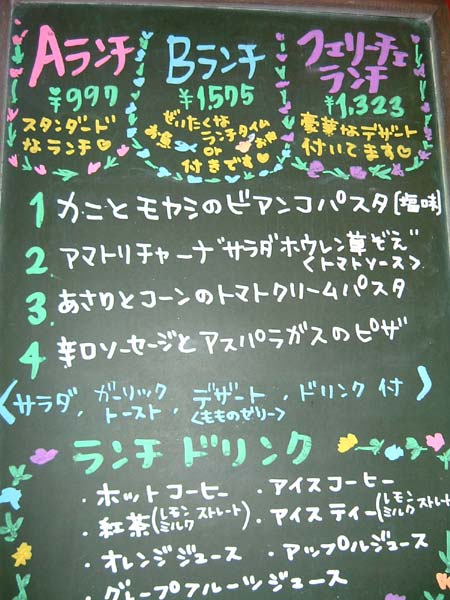 Aランチ
¥997
スタンダード
なランチ♡
Bランチ
¥1575
ぜいたくな
ランチタイム
お魚 or お肉
付きです♡
フェリーチェ
ランチ
¥1,323
豪華なデザート
付いてます♡
1 カニとモヤシのビアンコパスタ[塩味]
2. アマトリチャーナ"サラダホウレン草ぞえ"
<トマトソース>
3. あさりとコーンのトマトクリームパスタ
4 辛口ソーセージとアスパラガスのピザ
<サラダ、ガーリックトースト、デザート、ドリンク付>
<もものゼリー>
ランチドリンク
・ホットコーヒー ・アイスコーヒー
・紅茶(レモン ストレート ミルク) ・アイスティー(レモン ストレート ミルク)
・オレンジジュース ・アップルジュース
・グレープフルーツジュース